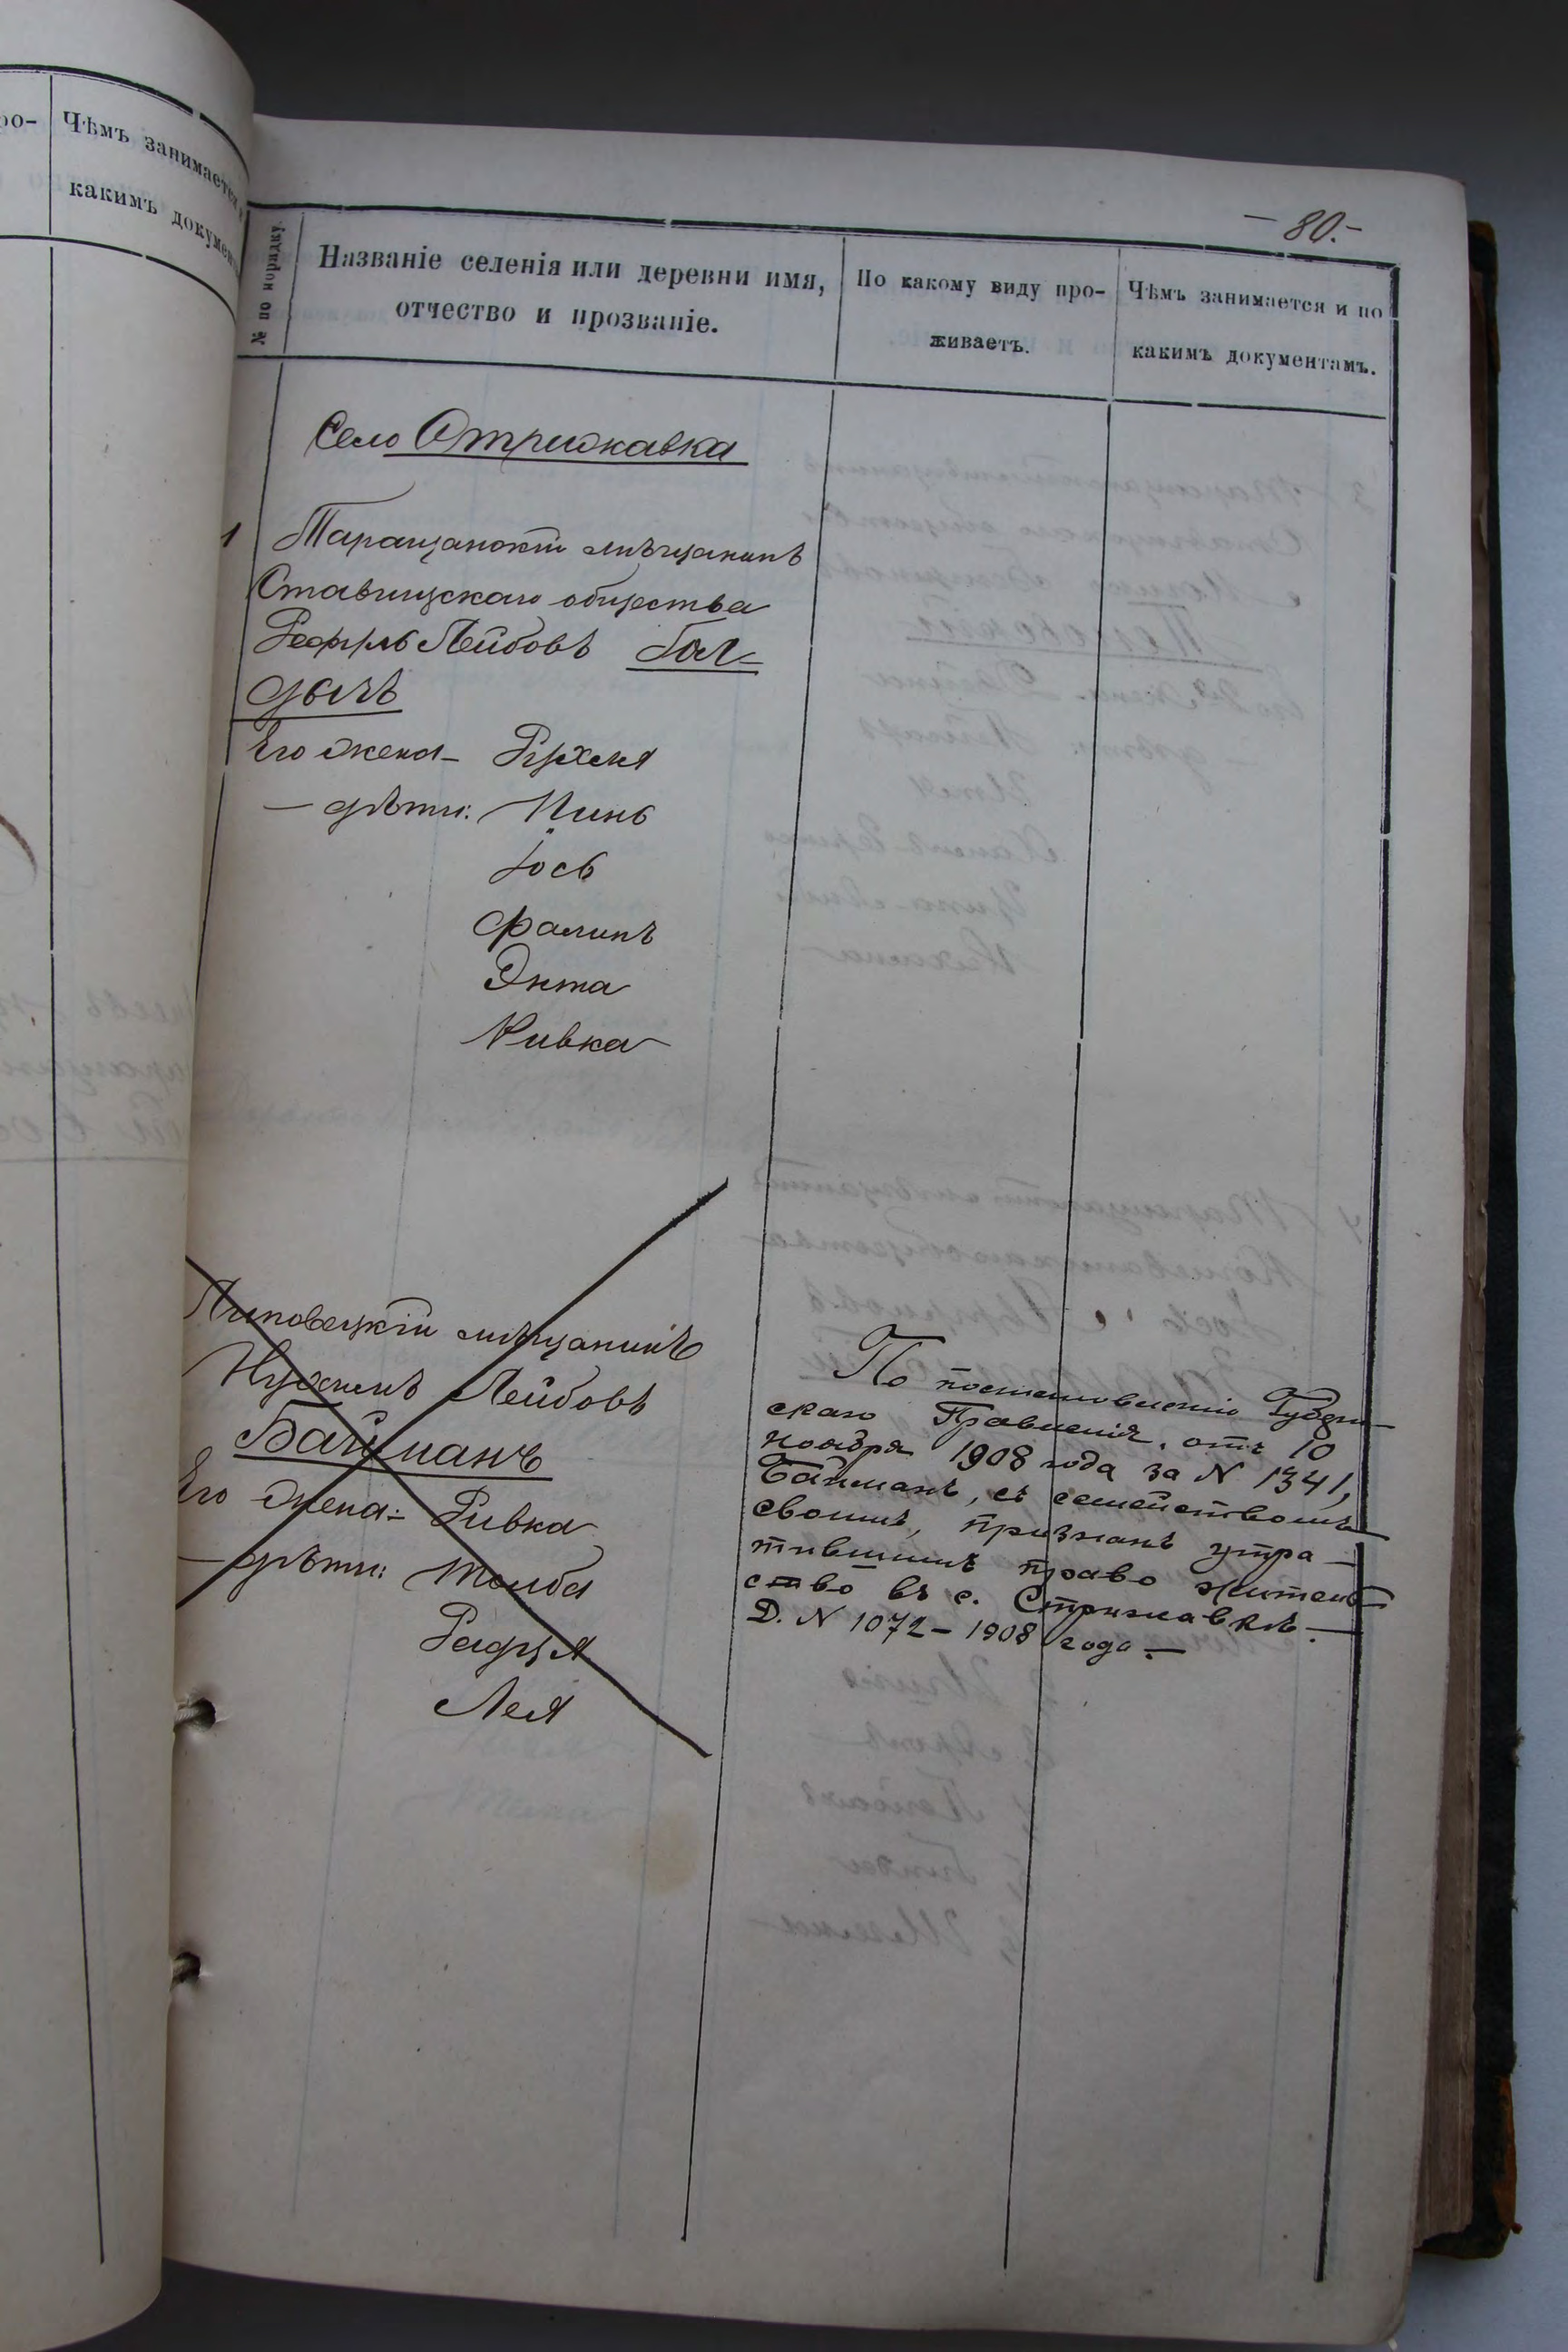 ро-
Чѣмъ занимается
какимъ докумен
— 80.—
№ по порядку.
Названіе селенія или деревни имя,
отчество и прозваніе.
По какому виду про-
живаетъ.
Чѣмъ занимается и по
какимъ документамъ.
Село Стрижавка
1 Таращанскій мѣщанинъ
Ставищскаго общества
Лейбовъ Бол-
Его жена — Рухля
— дѣти: Пинь
Іось
Фалинъ
Энта
Ривка
Липовецкій мѣщанинъ
Нухимъ Лейбовъ
Байманъ
Его жена — Ривка
— дѣти: Толба
Рафул
Лея
По постановленію Губерн-
скаго Правленія, отъ 10
ноября 1908 года за N 1341,
Байманъ, съ семействомъ
своимъ, признанъ утра-
тившимъ право житель-
ство въ с. Стрижавкѣ.—
Д. N 1072 — 1908 года.—